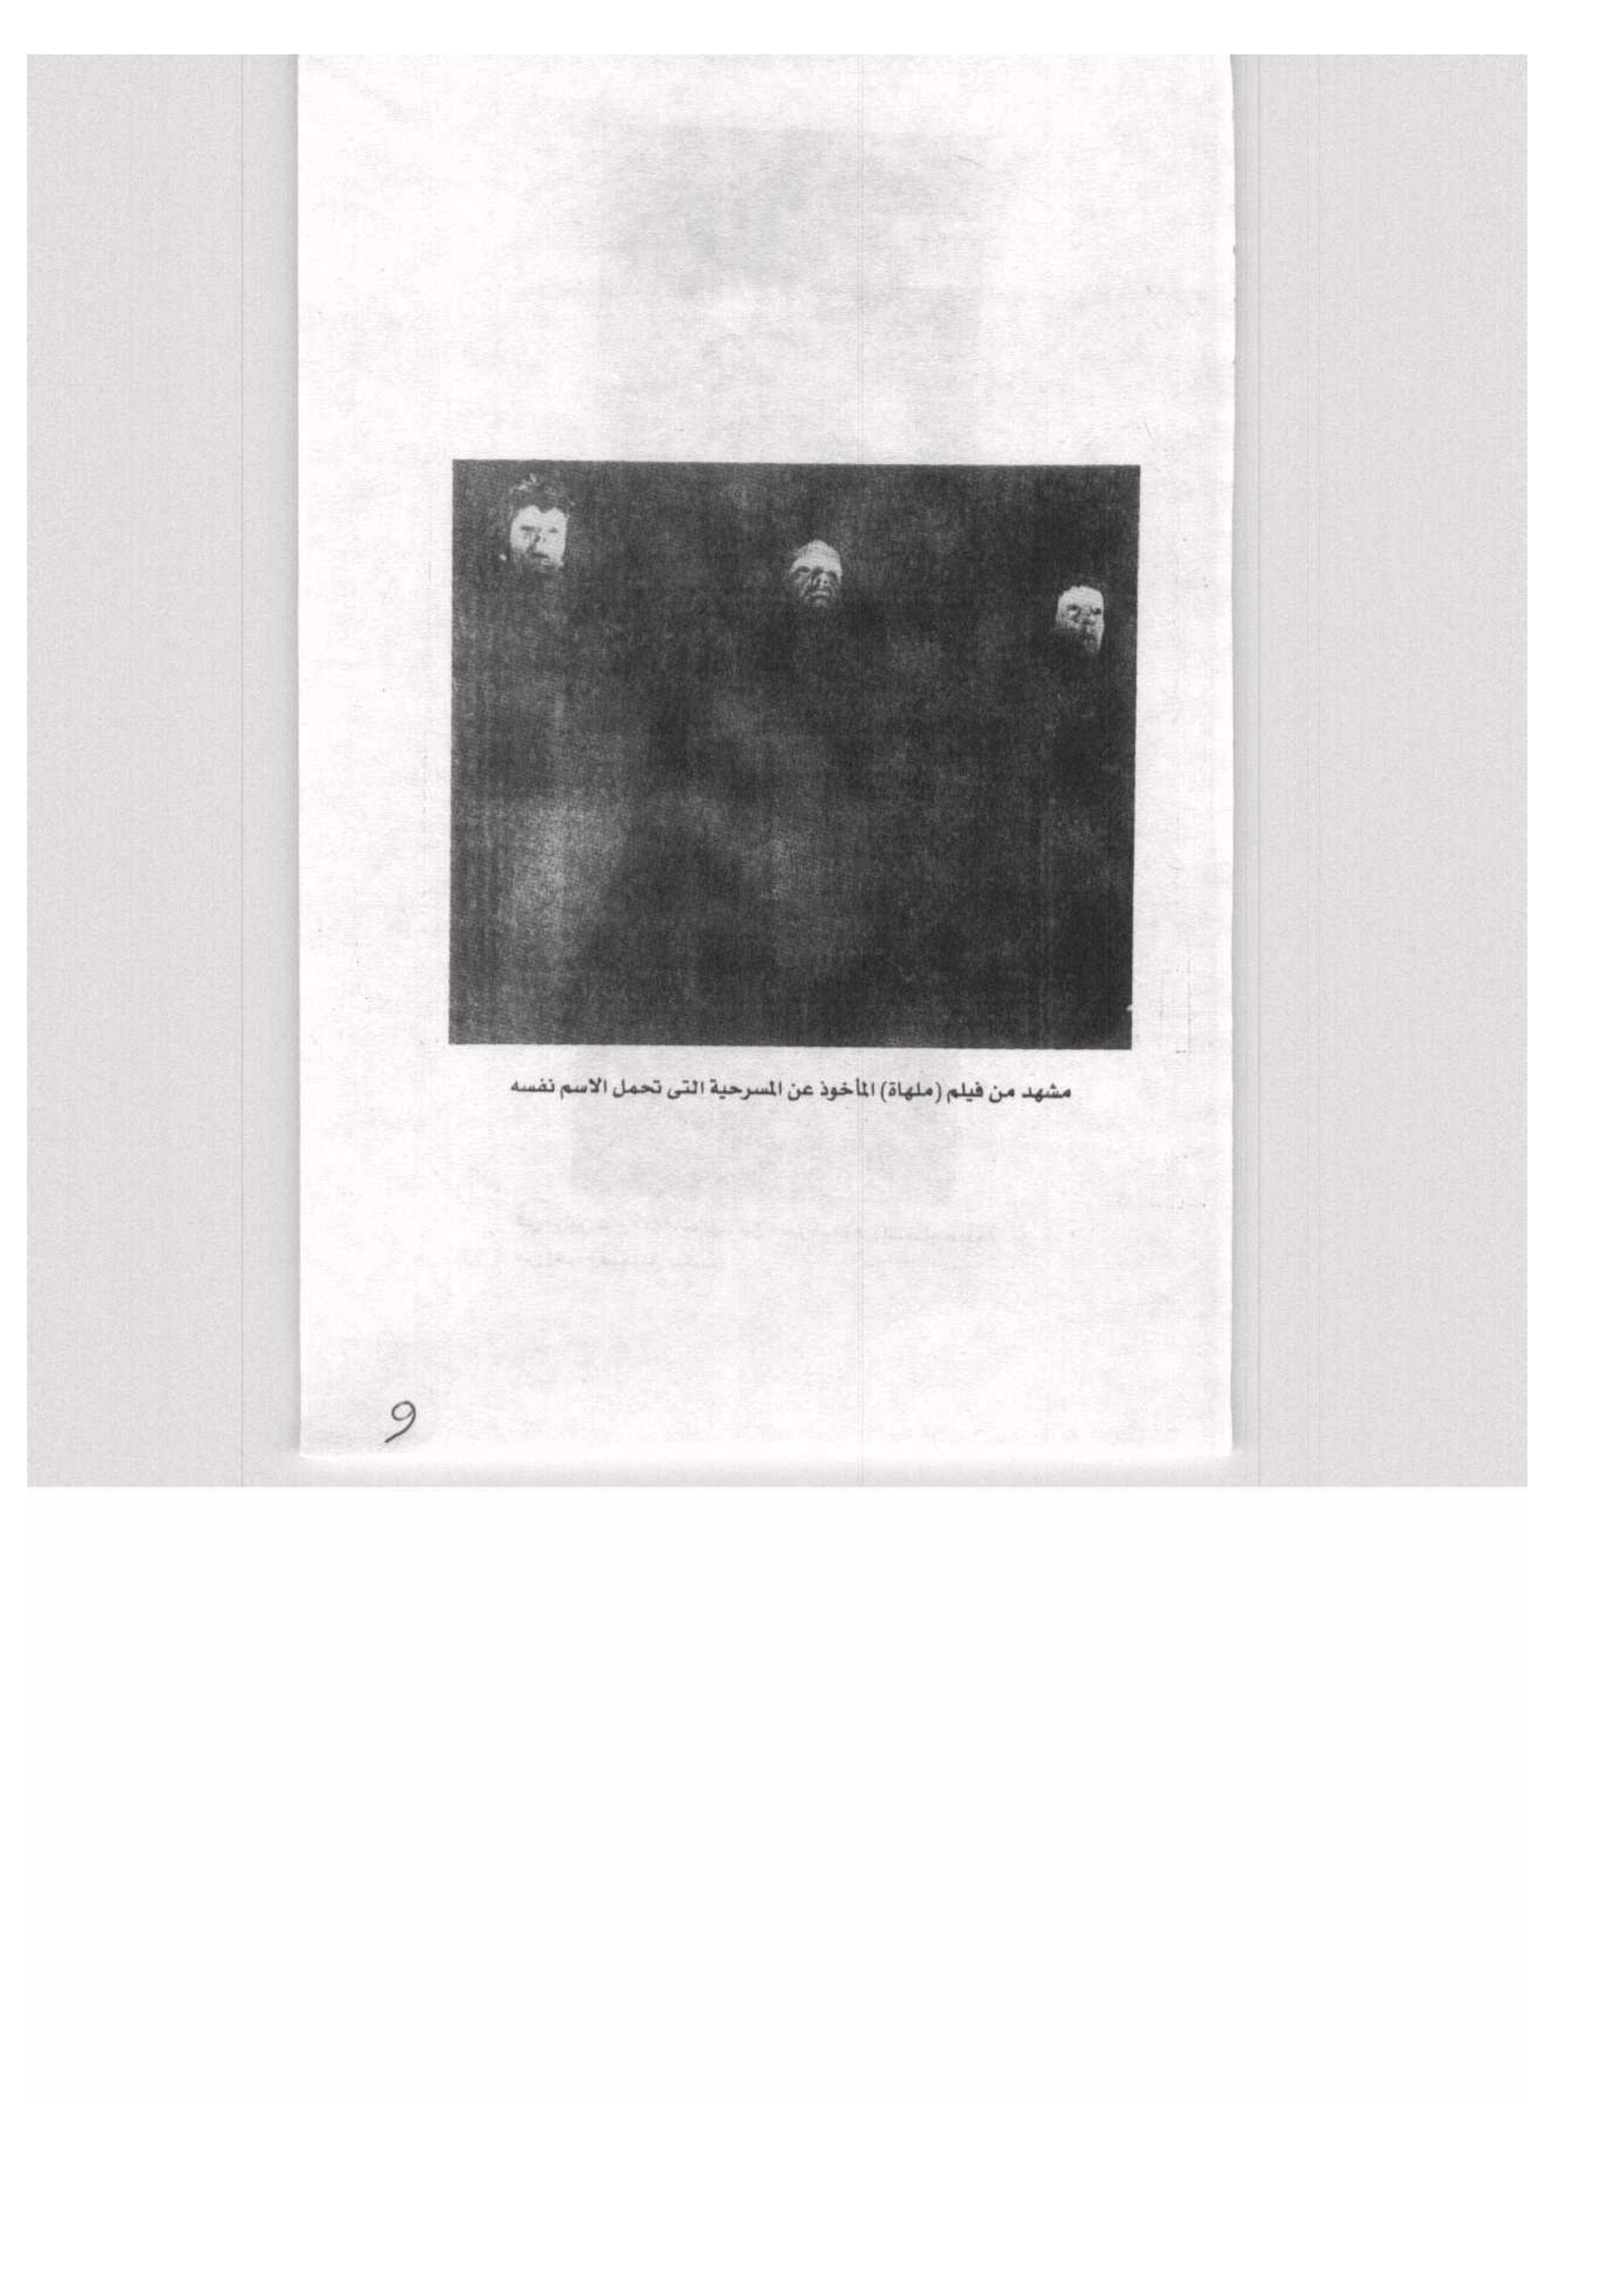 مشهد من فيلم (ملهاة) المأخوذ عن المسرحية التى تحمل الاسم نفسه
9